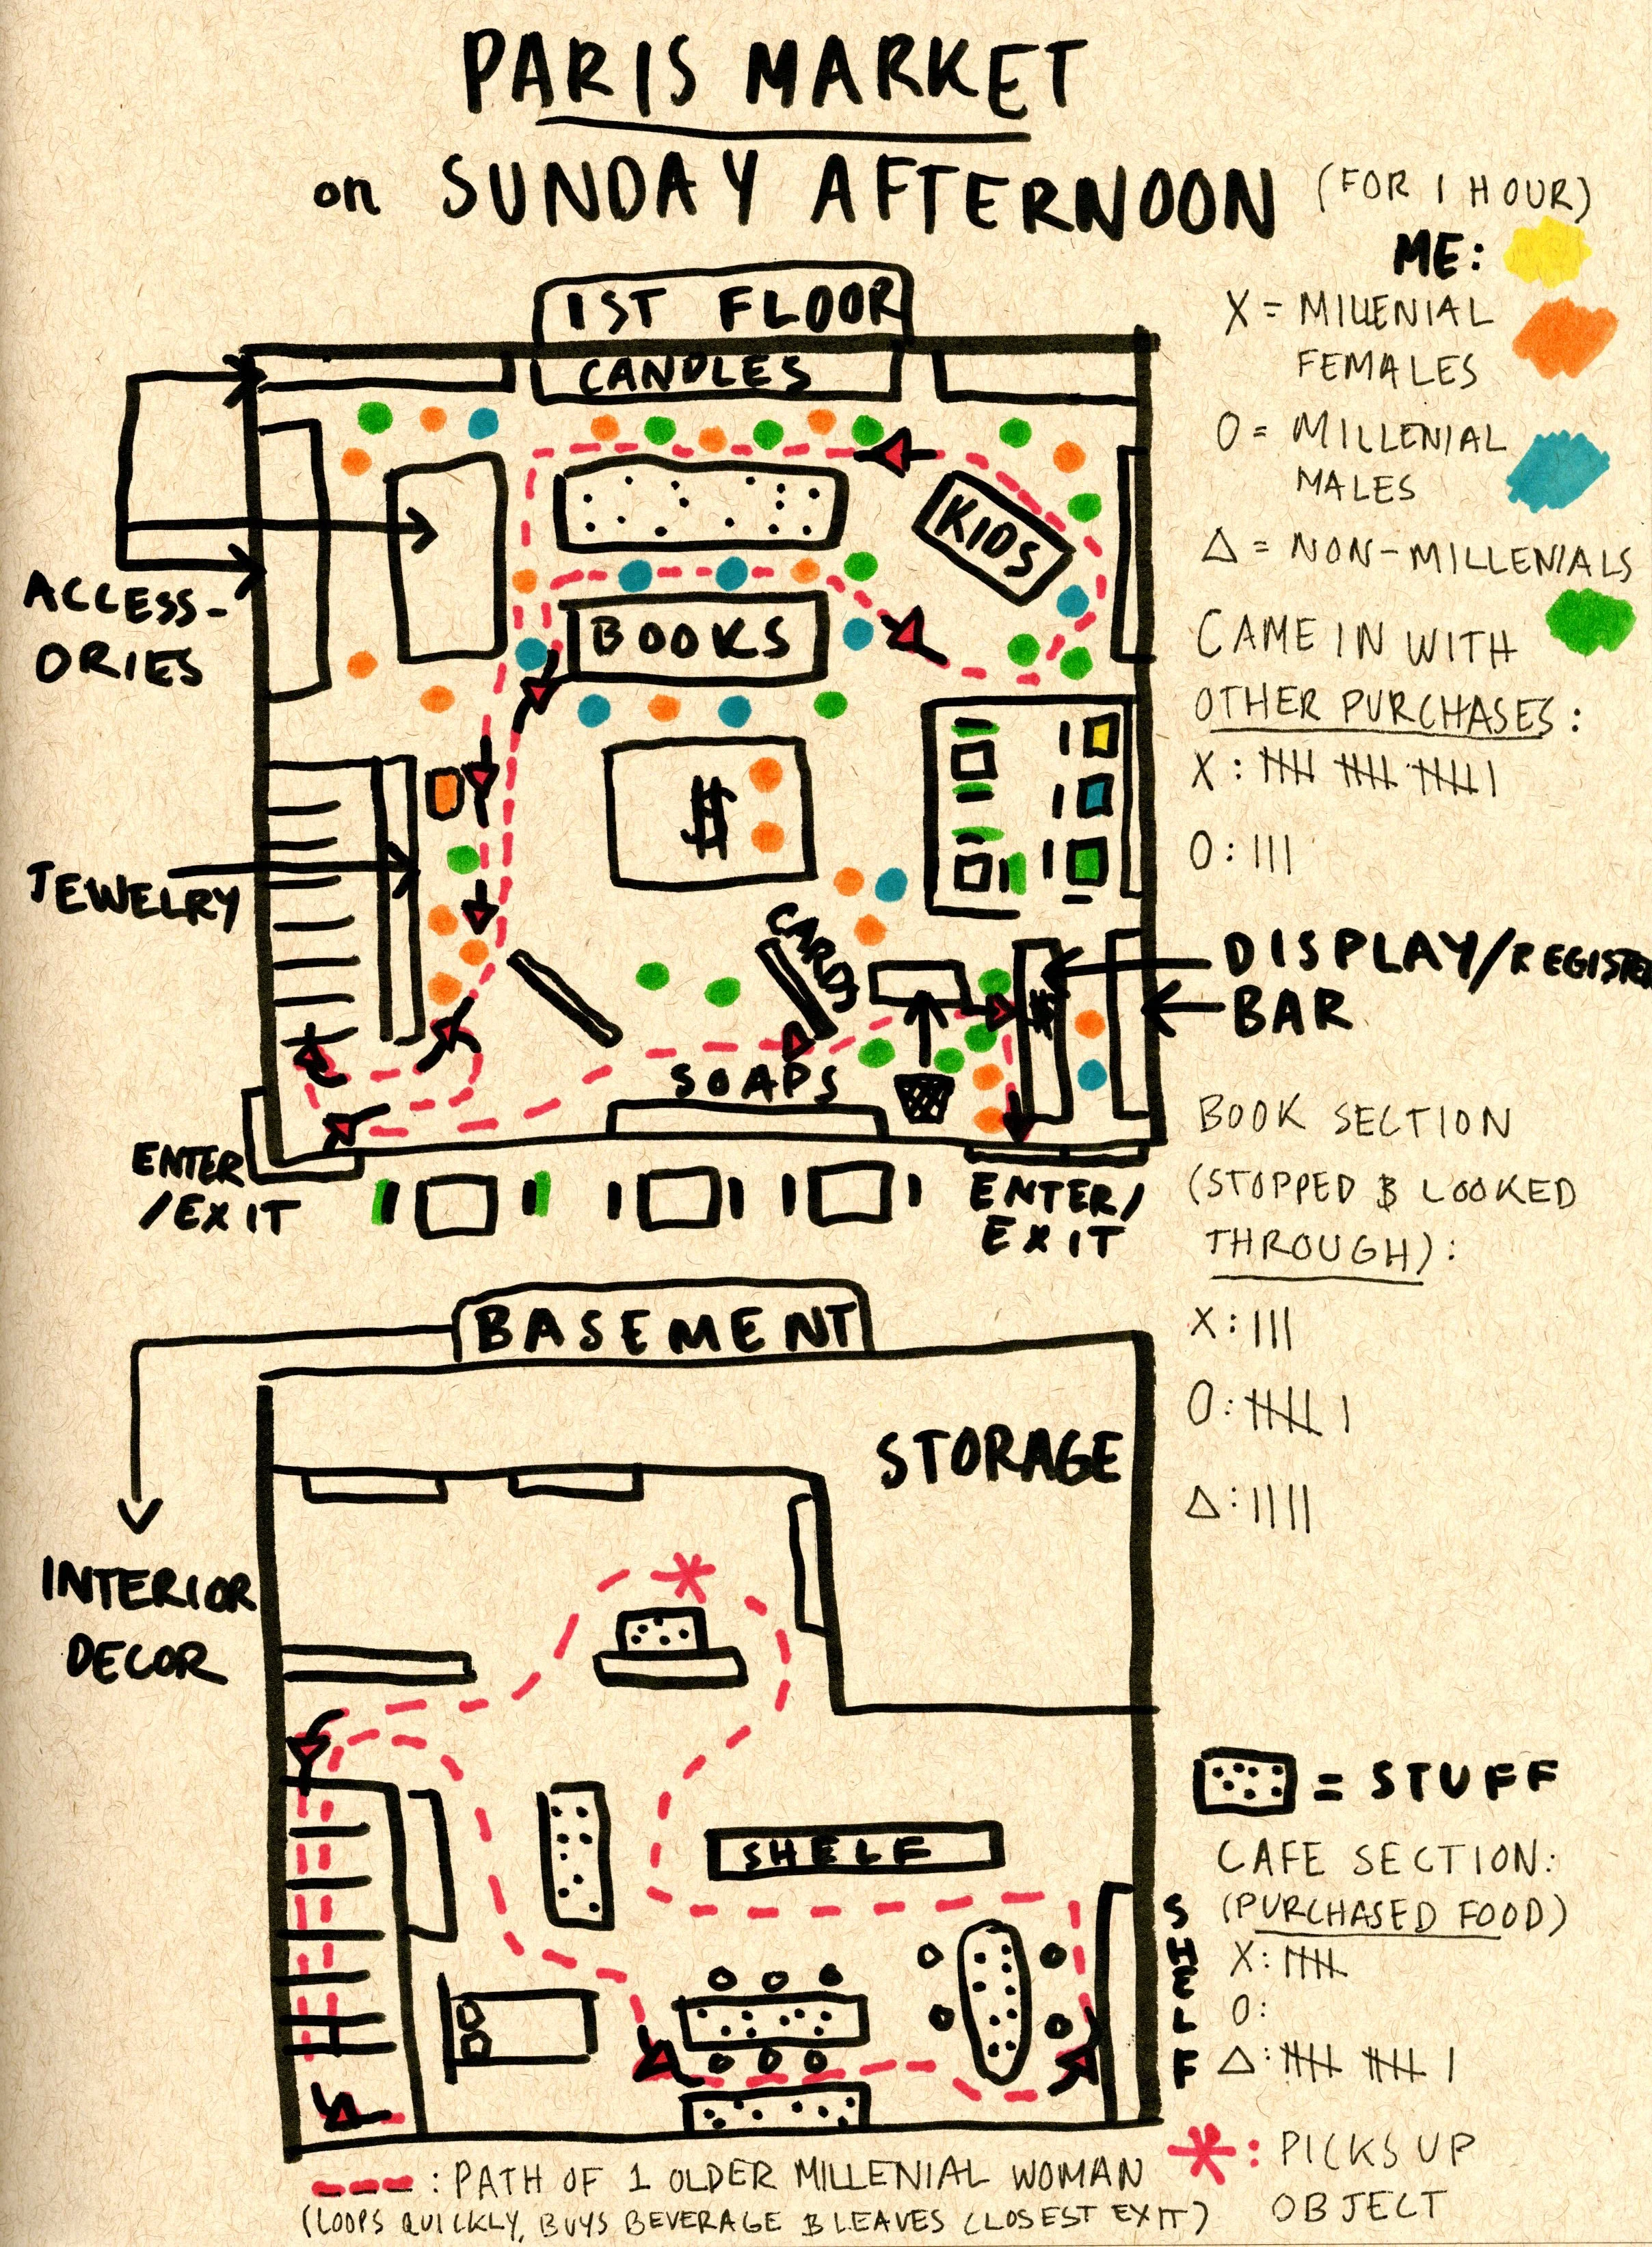 PARIS MARKET
on SUNDAY AFTERNOON (FOR 1 HOUR)
ME:
X = MILLENIAL
FEMALES
O = MILLENIAL
MALES
Δ = NON-MILLENIALS
CAME IN WITH
OTHER PURCHASES:
X: 卌 卌 卌 |
O: |||
1ST FLOOR
CANDLES
KIDS
ACCESS-
ORIES
BOOKS
$
JEWELRY
CARDS
DISPLAY/REGISTER
$
BAR
SOAPS
ENTER
/EXIT
ENTER/
EXIT
BOOK SECTION
(STOPPED & LOOKED
THROUGH):
X: |||
O: 卌 |
Δ: ||||
BASEMENT
STORAGE
INTERIOR
DECOR
SHELF
SHELF
= STUFF
CAFE SECTION:
(PURCHASED FOOD)
X: 卌
O:
Δ: 卌 卌 |
--- : PATH OF 1 OLDER MILLENIAL WOMAN
(LOOPS QUICKLY, BUYS BEVERAGE & LEAVES CLOSEST EXIT)
*: PICKS UP
OBJECT